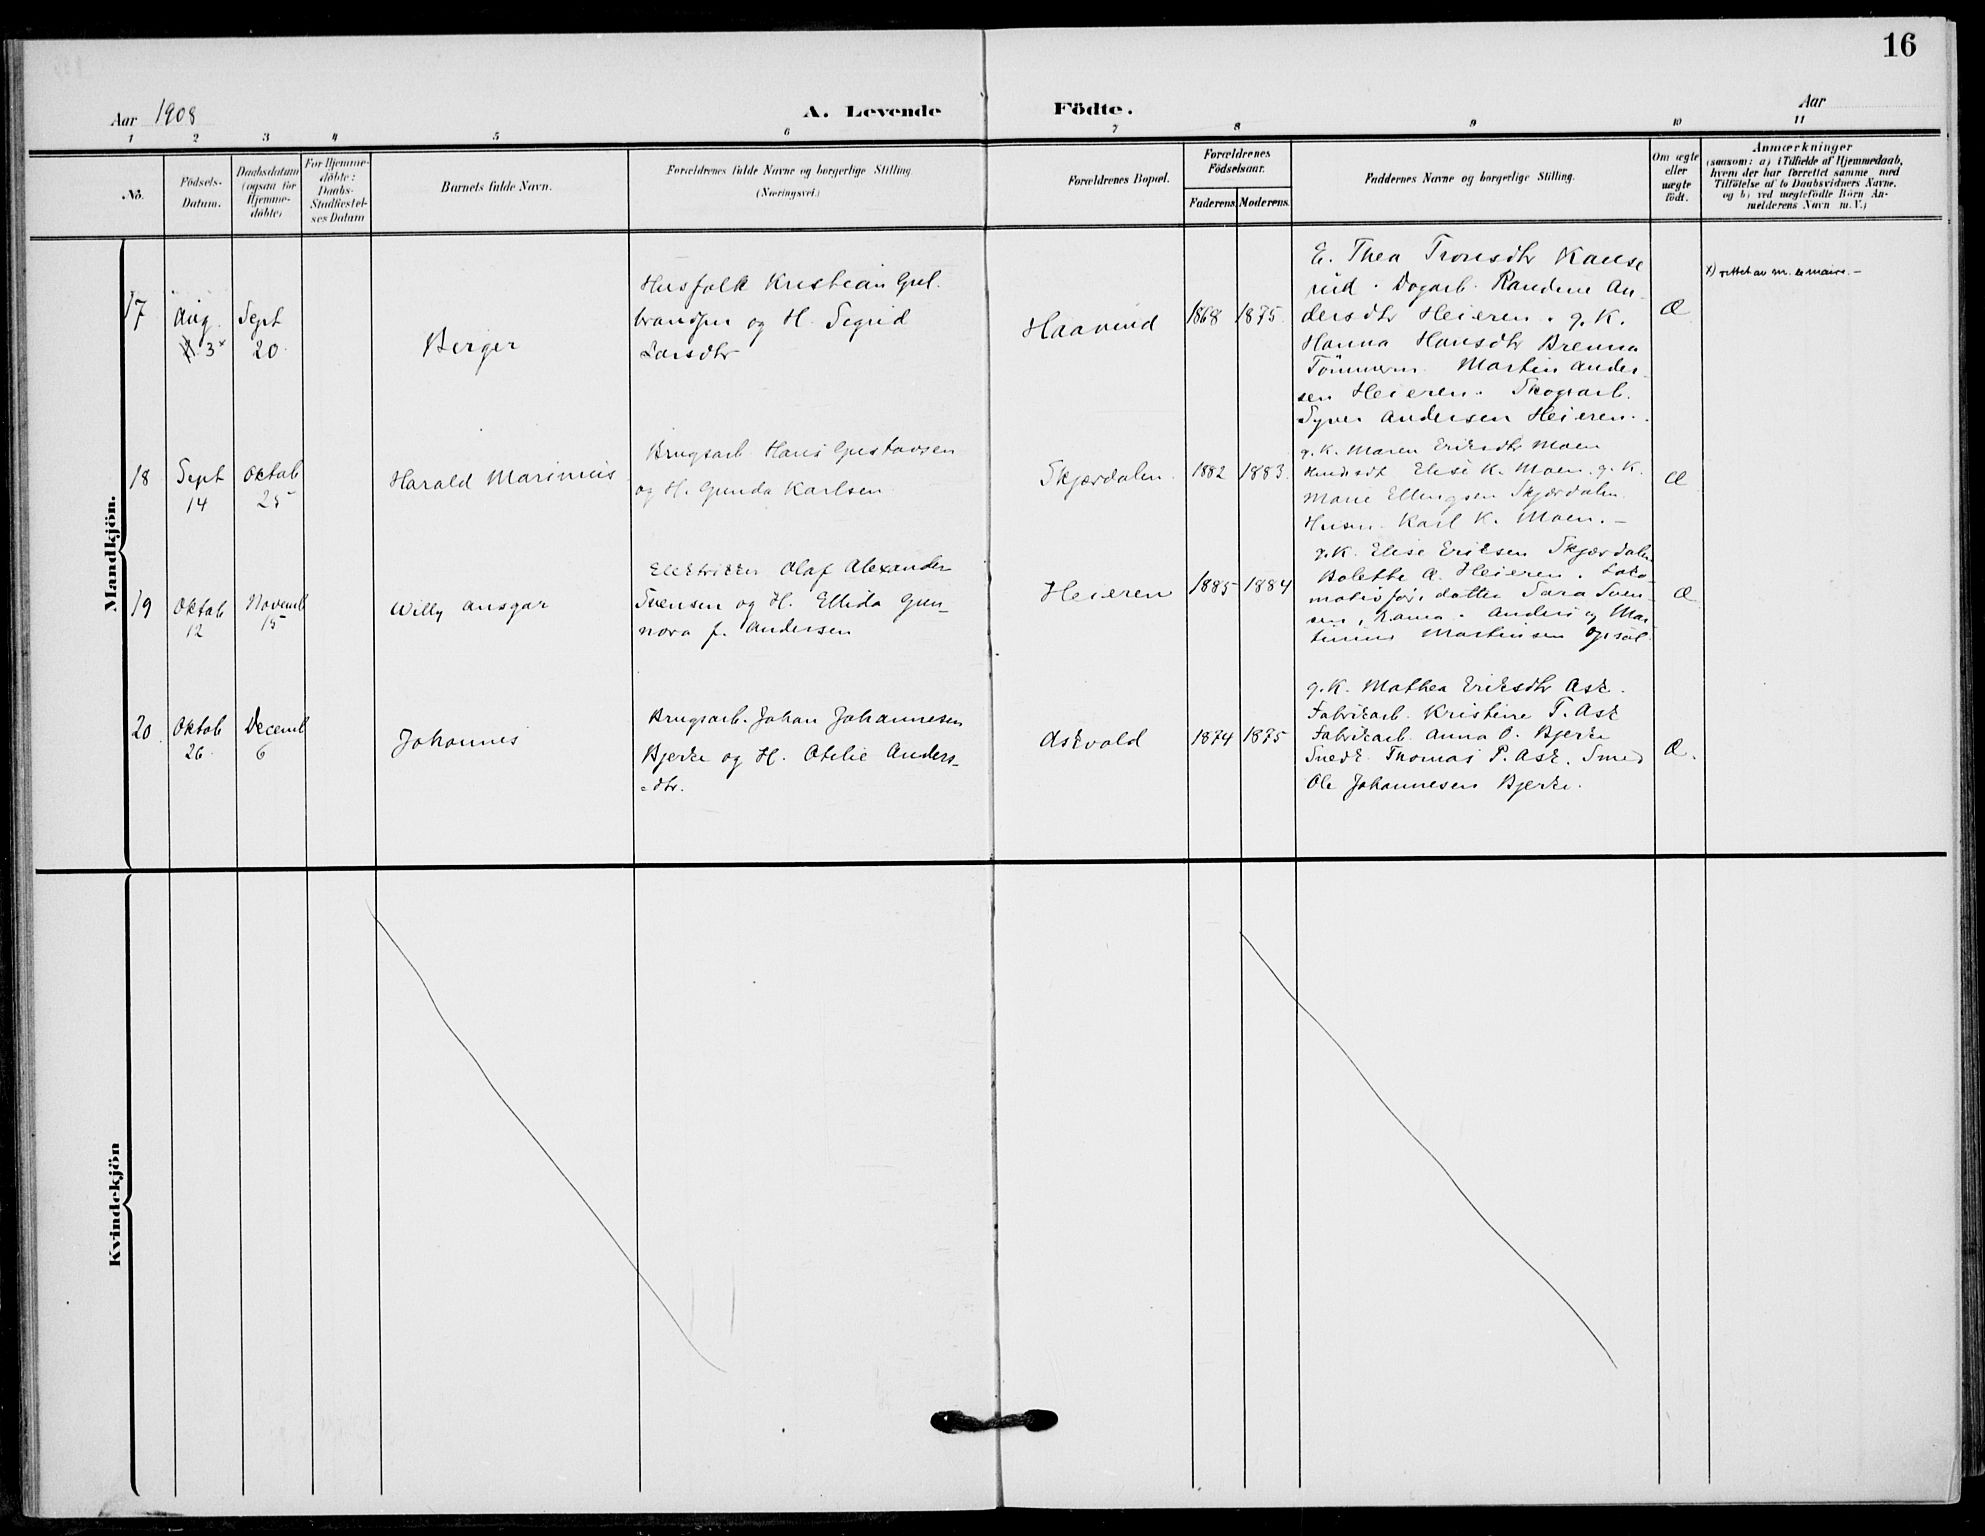 16
Aar 1908
A. Levende Födte.
Aar
1 2 3 4 5 6 7 8 9 10 11
No.
Födsels-
Datum.
Daabsdatum
(ogsaa for
Hjemme-
döbte)
For Hjemme-
döbte:
Daabs-
Stadfæstel-
ses Datum
Barnets fulde Navn.
Forældrenes fulde Navne og borgerlige Stilling
(Næringsvei.)
Forældrenes Bopæl.
Forældrenes
Födselsaar.
Faderens. Moderens.
Faddernes Navne og borgerlige Stilling.
Om ægte
eller
uægte
födt.
Anmærkninger
(saasom: a) i Tilfælde af Hjemmedaab,
hvem der har forrettet samme med
Tilföielse af to Daabsvidners Navne,
og b) ved uægtefödte Börn An-
melderens Navn m. V.)
Mandkjön.
17
Aug.
3 x
Sept
20.
Berger
Husfolk Kristian Gul.
bransen og H. Sigrid
Larsdtr
Haavind
1868 1875.
E. Thea Tronsdtr Kanse
rud. Dagarb. Randine An-
dersdtr Heieren. g. K.
Hanna Hansdtr Brenna
Tömmerm. Martin Ander-
sen Heieren. Skogsarb.
Syver Andersen Heieren.
Æ
x) rettet av m. le maire. -
18
Sept
14
Oktob
25
Harald Marinius
Brugsarb Hans Gustavsen
og H. Gunda Karlsen
Skjærdalen.
1882 1883.
g. K. Maren Eriksdtr Moen
Elise K. Moen. g. K.
Marie Ellingsen Skjærdalen.
Husm. Karl K. Moen. -
Æ
19
Oktob
12
Novemb
15
Willy Ansgar
Elektriker Olaf Alexander
Svensen og H. Ellida Gun-
nora f. Andersen
Heieren
1885 1884
g. K. Elise Eriksen Skjærdalen
Bolette A. Heieren. Loko-
motivför. datter Sara Sven-
sen, Anders og Mar-
tinius Martinsen Opsal.
Æ
20.
Oktob
26
Decemb
6
Johannes
Brugsarb. Johan Johannesen
Bjerke og H. Otelie Anders-
-dtr.
Askvald
1874 1875
g. K. Mathea Eriksdtr Ask.
Fabrikarb. Kristine T. Ask
Fabrikarb. Anna O. Bjerke
Snedk. Thomas P. Ask. Smed
Ole Johannesen Bjerke.
Æ.
Kvindekjön